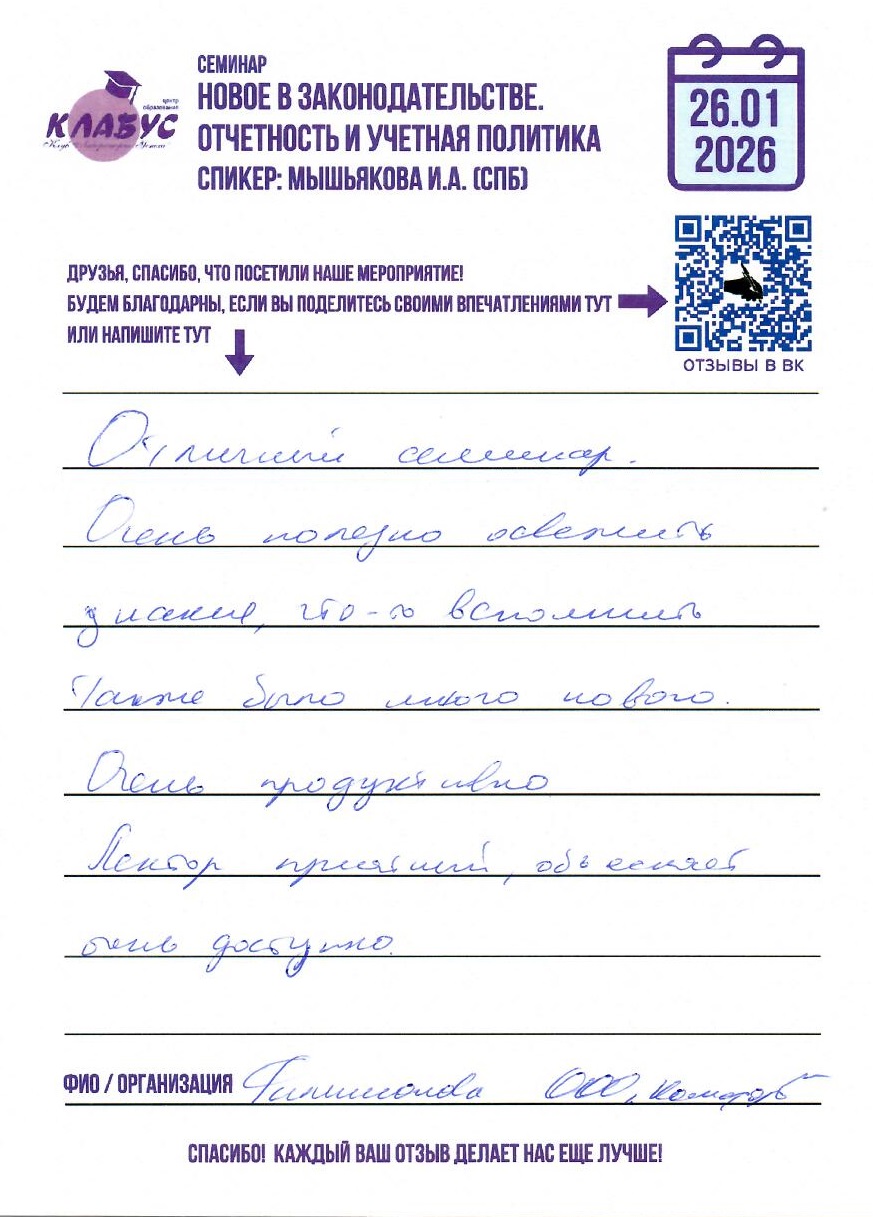 СЕМИНАР
НОВОЕ В ЗАКОНОДАТЕЛЬСТВЕ.
ОТЧЕТНОСТЬ И УЧЕТНАЯ ПОЛИТИКА
СПИКЕР: МЫШЬЯКОВА И.А. (СПБ)
центр
образования
КЛАБУС
26.01
2026
ДРУЗЬЯ, СПАСИБО, ЧТО ПОСЕТИЛИ НАШЕ МЕРОПРИЯТИЕ!
БУДЕМ БЛАГОДАРНЫ, ЕСЛИ ВЫ ПОДЕЛИТЕСЬ СВОИМИ ВПЕЧАТЛЕНИЯМИ ТУТ
ИЛИ НАПИШИТЕ ТУТ
ОТЗЫВЫ В ВК
Отличный семинар.
Очень полезно освежить
знания, что-то вспомнить
Также было много нового.
Очень продуктивно
Лектор приятный, объясняет
очень доступно.
ФИО / ОРГАНИЗАЦИЯ ООО
СПАСИБО! КАЖДЫЙ ВАШ ОТЗЫВ ДЕЛАЕТ НАС ЕЩЕ ЛУЧШЕ!